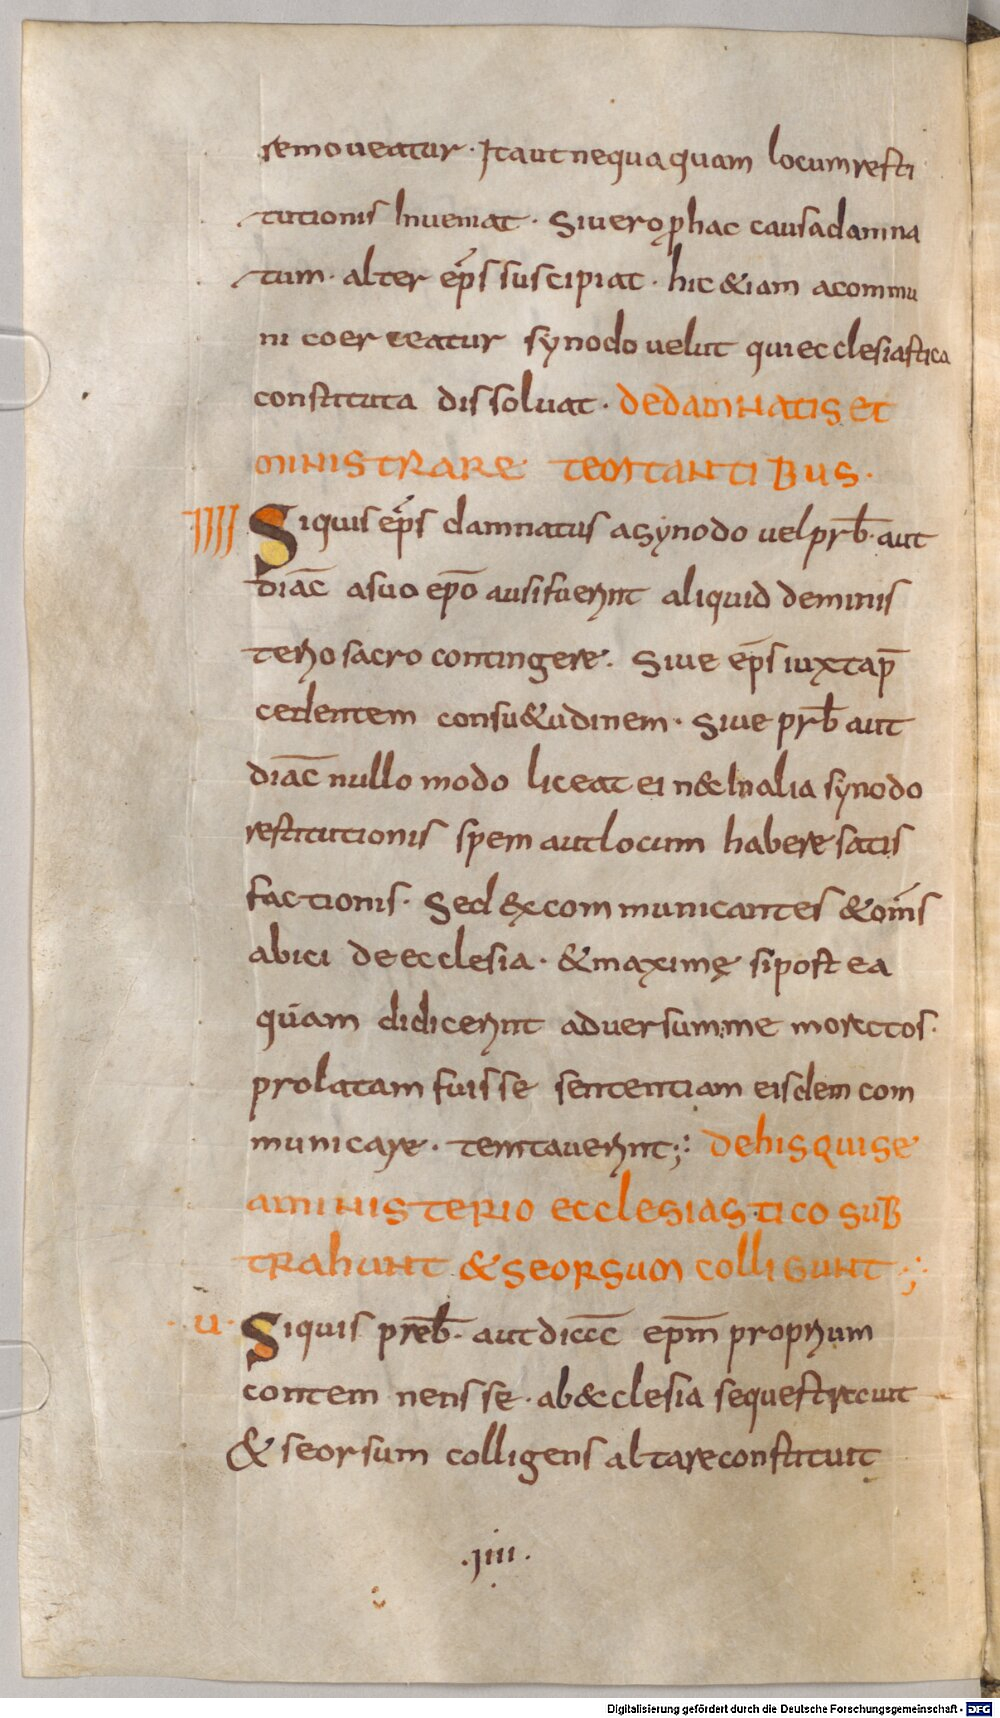 remoueatur · Itaut nequaquam locum resti
tutionis Inueniat · Siuero ꝓ hac causa damna
tum · alter ep̄s suscipiat · hic &iam acommu
ni coerceatur synodo uelut qui ecclesiastica
constituta dissoluat · DEDAMNATIS ET
MINISTRARE TEMTANTIBUS ·
IIII Siquis ep̄s damnatus asynodo uel prb̄ · aut
diac̄ asuo ep̄o ausi fuerint aliquid deminis
terio sacro contingere · Siue ep̄s iuxta p̄
cedentem consu&udinem · Siue prb̄ aut
diac̄ nullo modo liceat ei n& In alia synodo
restitutionis spem aut locum habere satis
factionis · Sed & excommunicantes & om̄s
abici de ecclesia · & maximę si postea
quam didicerint aduersum me morectos ·
prolatam fuisse sententiam eisdem com
municare · temtauerint ; DEHIS QUI SE
AMINISTERIO ECCLESIASTICO SUB
TRAHUNT & SEORSUM COLLIGUNT ;
U · Siquis preb̄ · aut dicc̄ ep̄m proprium
contemnens se · ab &cclesia sequestrauit
& seorsum colligens altare constituit
· IIII ·
Digitalisierung gefördert durch die Deutsche Forschungsgemeinschaft - DFG